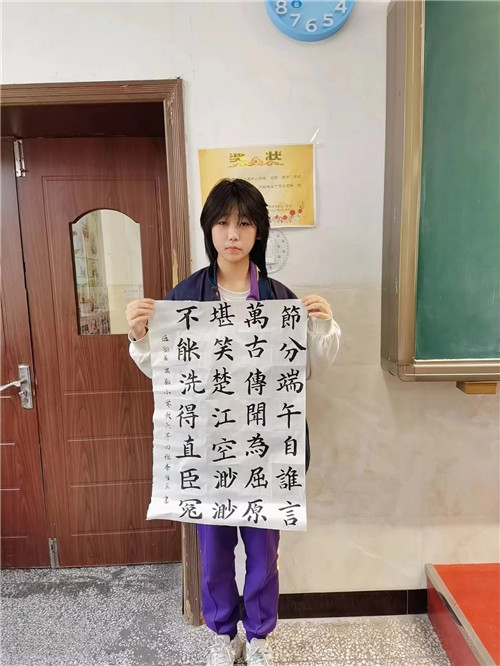 奖状
節分端午自誰言
萬古傳聞為屈原
堪笑楚江空渺渺
不能洗得直臣冤
8 7 6 5 4